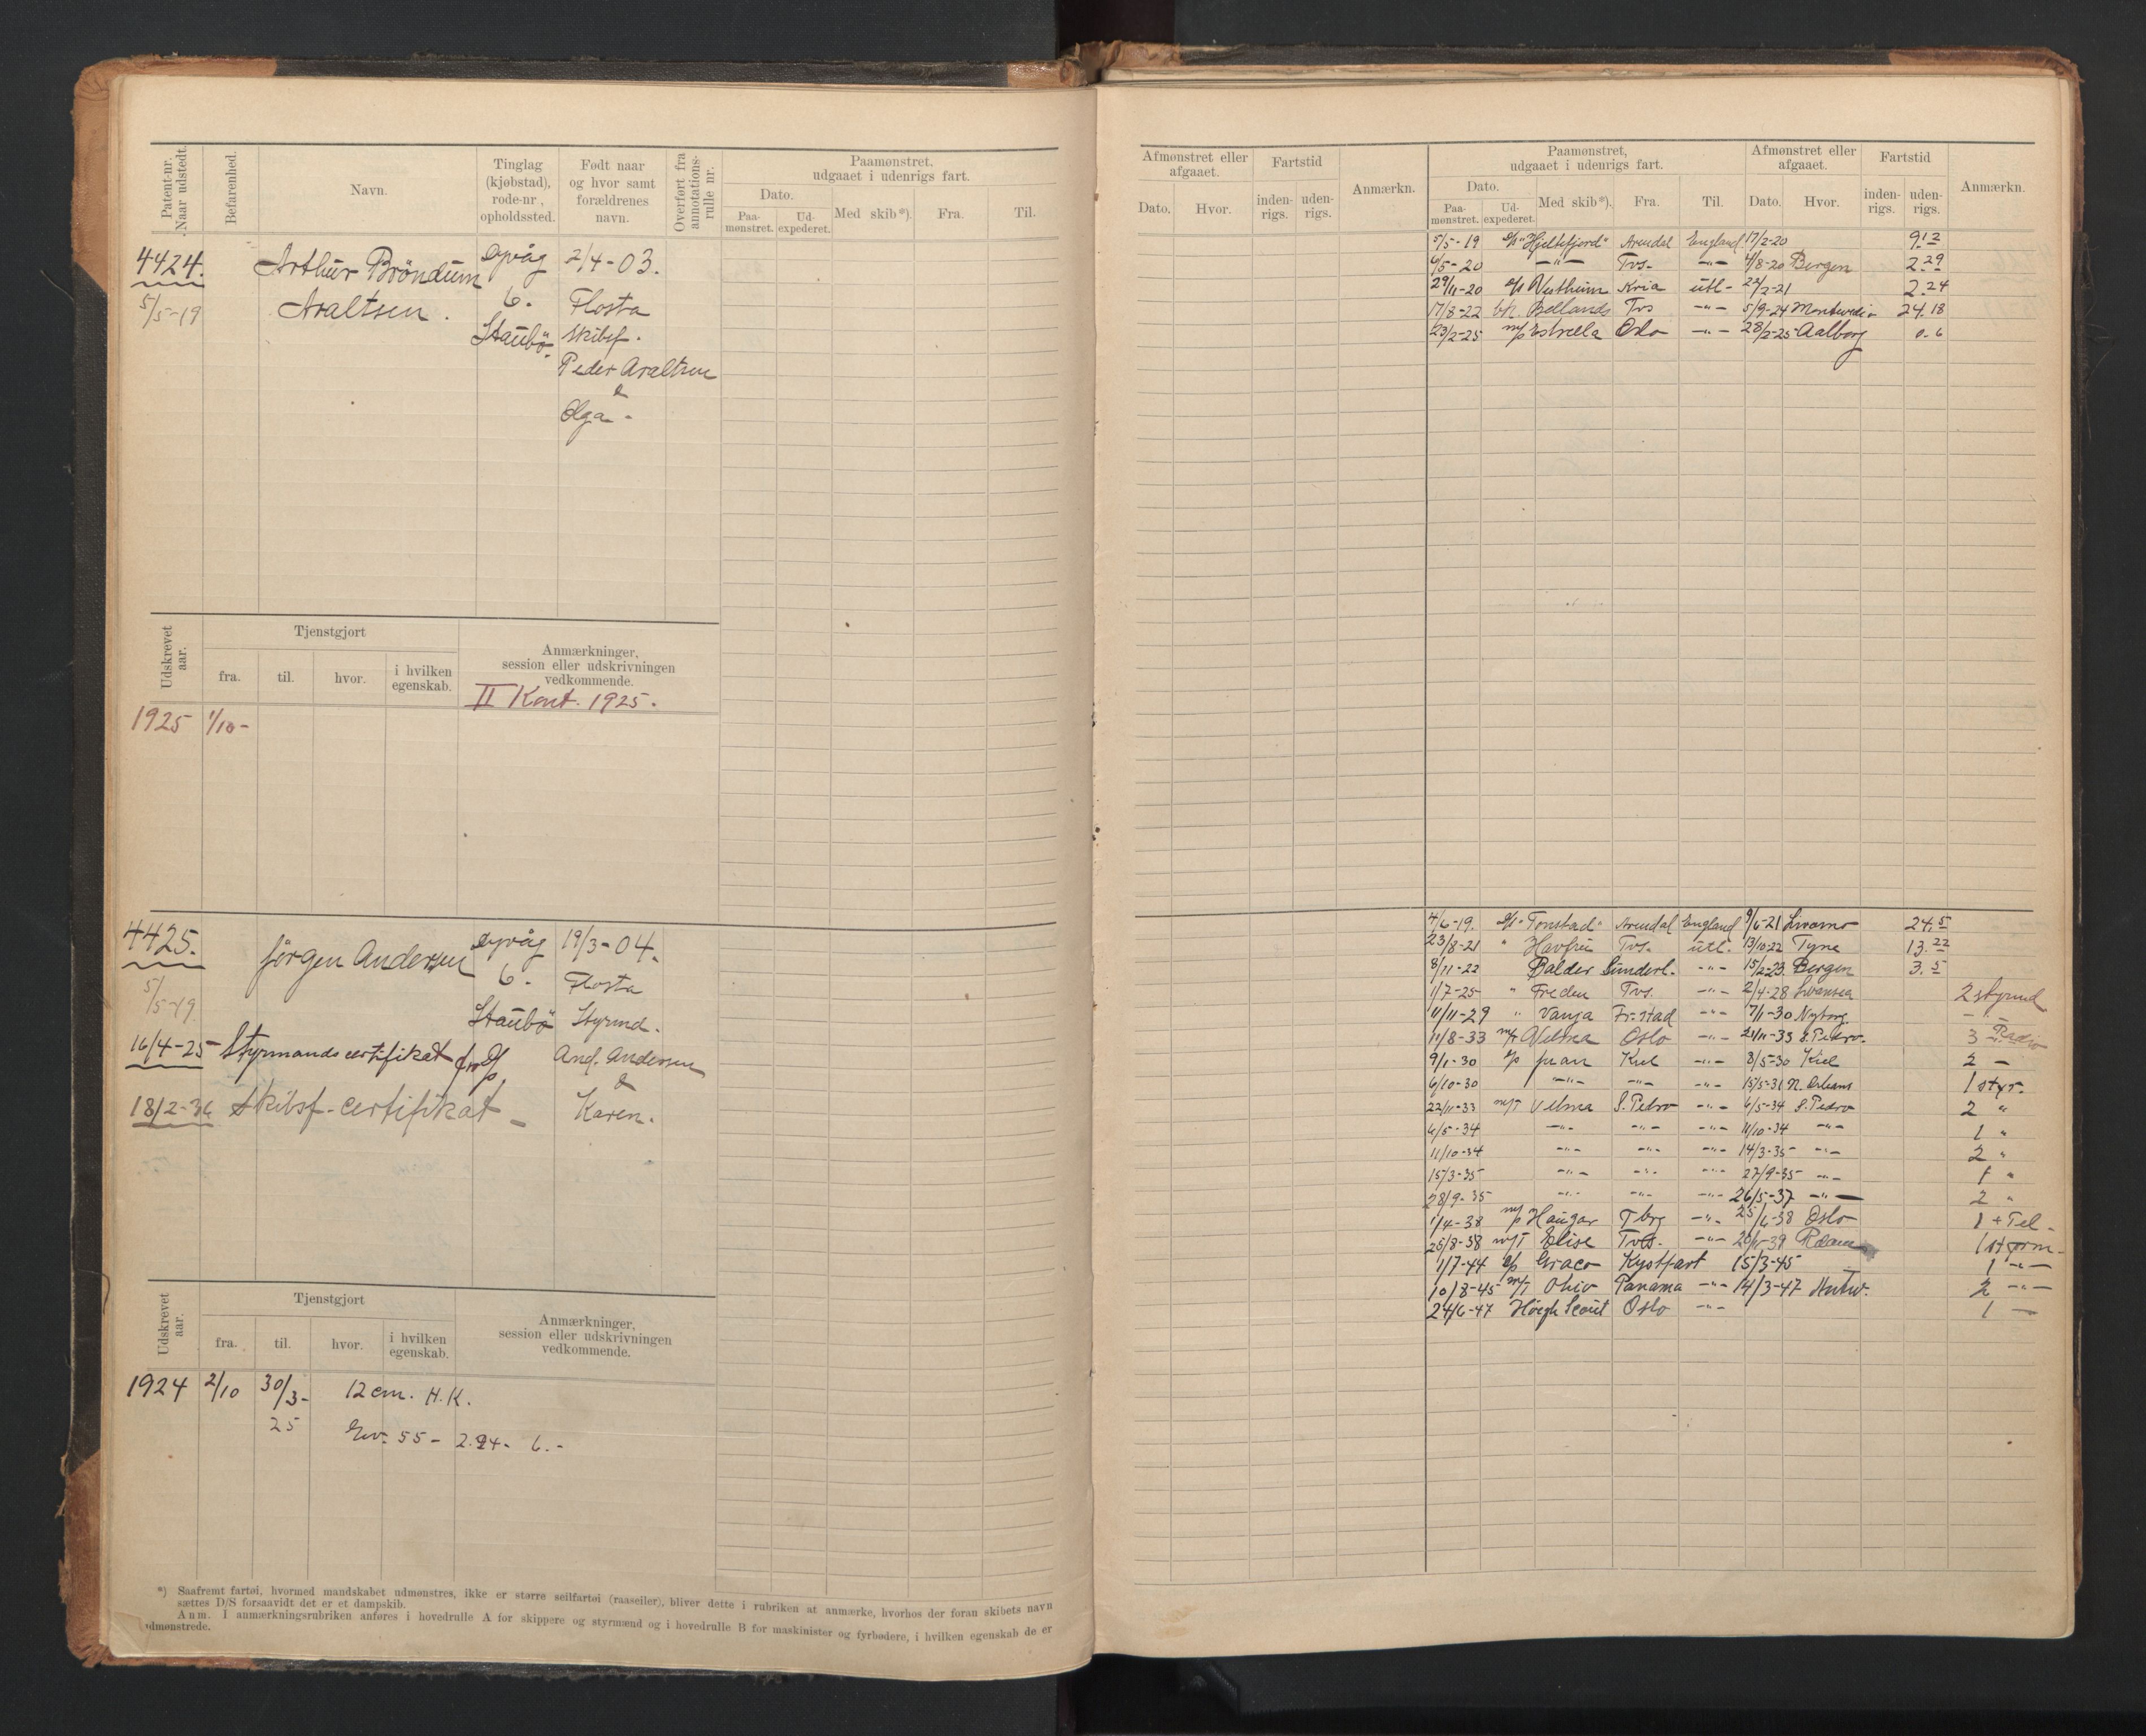 Patent-nr. Naar udstedt.
Befarenhed.
Navn.
Tinglag (kjøbstad), rode-nr., opholdssted.
Født naar og hvor samt forældrenes navn.
Overført fra annotations-rulle nr.
Paamønstret, udgaaet i udenrigs fart.
Dato.
Paa-mønstret. Ud-expederet. Med skib*). Fra. Til.
4424. Arthur Bröndum Dypvåg 2/4-03.
5/5-19 Araltsen. 6. Flosta
Staubö skibsf.
Peder Araltsen
&
Olga -
Udskrevet aar.
Tjenstgjort
fra. til. hvor. i hvilken egenskab.
Anmærkninger, session eller udskrivningen vedkommende.
II Kont. 1925.
1925 1/10-
4425. Jörgen Andersen Dypvåg 19/3-04.
5/5-19. 6. Flosta
Staubö Styrmd.
16/4-25 Styrmandscertifikat And. Andersen
&
18/2-36 Skibsf-certifikat - Karen.
Udskrevet aar.
Tjenstgjort
fra. til. hvor. i hvilken egenskab.
Anmærkninger, session eller udskrivningen vedkommende.
1924 2/10 30/3-25 12 cm. H.K.
55- 2.24- 6.-
*) Saafremt fartøi, hvormed mandskabet udmønstres, ikke er større seilfartøi (raaseiler), bliver dette i rubriken at anmærke, hvorhos der foran skibets navn
sættes D/S forsaavidt det er et dampskib.
Anm. I anmærkningsrubriken anføres i hovedrulle A for skippere og styrmænd og i hovedrulle B for maskinister og fyrbødere, i hvilken egenskab de er
udmønstrede.
Afmønstret eller afgaaet.
Dato. Hvor.
Fartstid
inden-rigs. uden-rigs.
Anmærkn.
Paamønstret, udgaaet i udenrigs fart.
Dato.
Paa-mønstret. Ud-expederet. Med skib*). Fra. Til.
Afmønstret eller afgaaet.
Dato. Hvor.
Fartstid
inden-rigs. uden-rigs.
Anmærkn.
5/5-19 D/S "Hjeltefjord" Arendal England 17/2-20 9.12
6/5-20 -"- Tvs. -"- 4/8-20 Bergen 2.29
29/11-20 D/S Vestheim Kria utl- 22/2-21 2.24
17/8-22 Bellands Tvs -"- 5/9-24 Montevedio 24.18
23/2-25 m/s Estrella Oslo -"- 28/2-25 Aalborg 0.6
4/6-19. D/S "Tonstad" Arendal England 9/6-21 Livorno 24.5
23/8-21 " Havfru Tvs. utl. 13/10-22 Tyne 13.22
8/11-22 Balder Sunderl. -"- 15/2-23. Bergen 3.5
1/7-25 " Freden Tvs. -"- 2/4-28 Swansea 2 styrmd
11/11-29 " Vanja Fr.stad -"- 7/1-30 Nyborg -"-
11/8-33 m/T Velma Oslo -"- 21/11-33 S. Pedro. 3 Radio
9/1-30 D/S Juan Kiel -"- 8/5-30 Kiel 2 -
6/10-30 -"- -"- -"- 15/5-31 N. Orleans 1 styr.
22/11-33 m/T Velma S. Pedro -"- 6/5-34 S. Pedro 2 "
6/5-34 -"- -"- -"- 11/10-34 -"- 1 "
11/10-34 -"- -"- -"- 14/3-35 -"- 2 "
15/3-35 -"- -"- -"- 27/9-35 -"- 1 "
28/9-35 -"- -"- -"- 26/5-37 -"- 2 "
1/4-38 m/s Haugar Tbrg -"- 25/6-38 Oslo 1 + Tel-
25/8-38 m/T Elise Tvs. -"- Rdam 1 styrm-
1/7-44 D/S Graco Kystfart 15/3-45 1 -"-
10/8-45 m/T Ohio Panama -"- 14/3-47 Antw. 2 -"-
24/6-47 Höegh Scout Oslo -"- 1 -